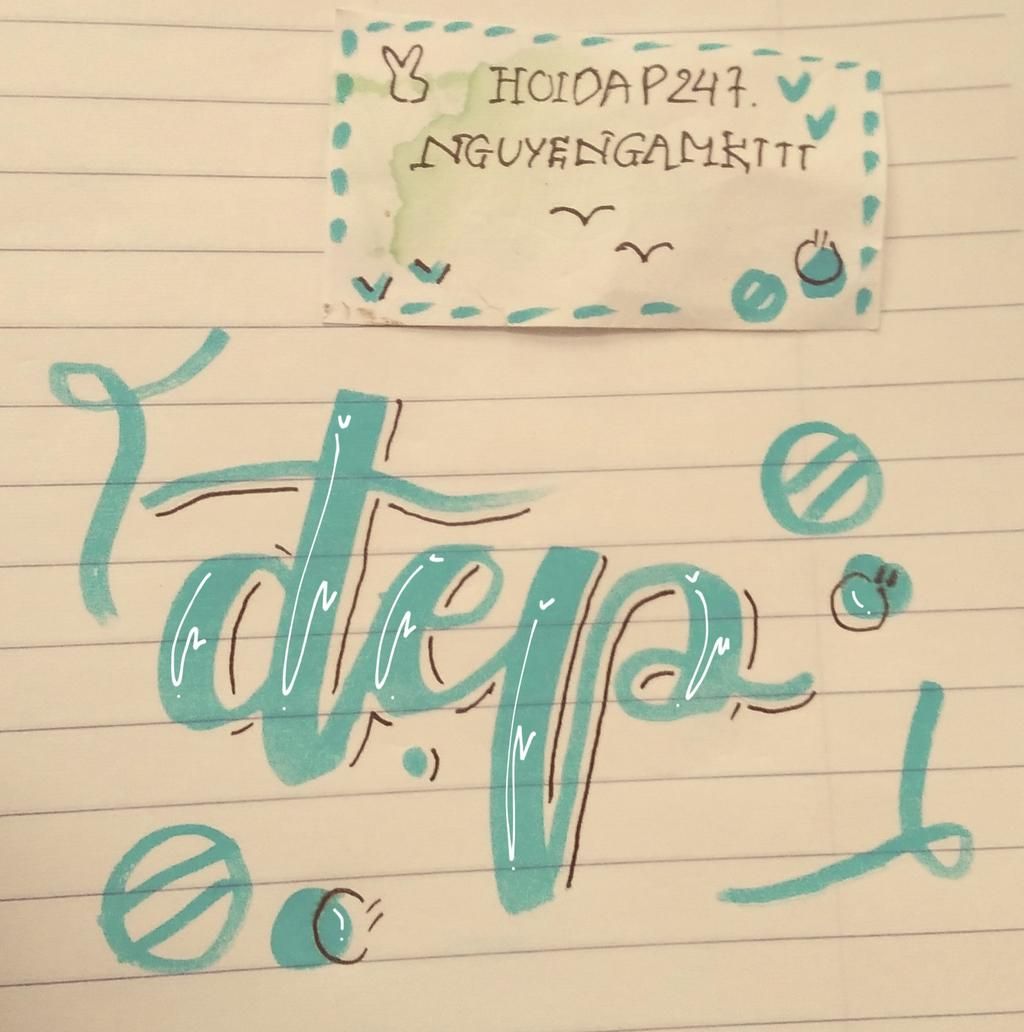 HOIDAP247.
NGUYENGAMKTTT
đẹp